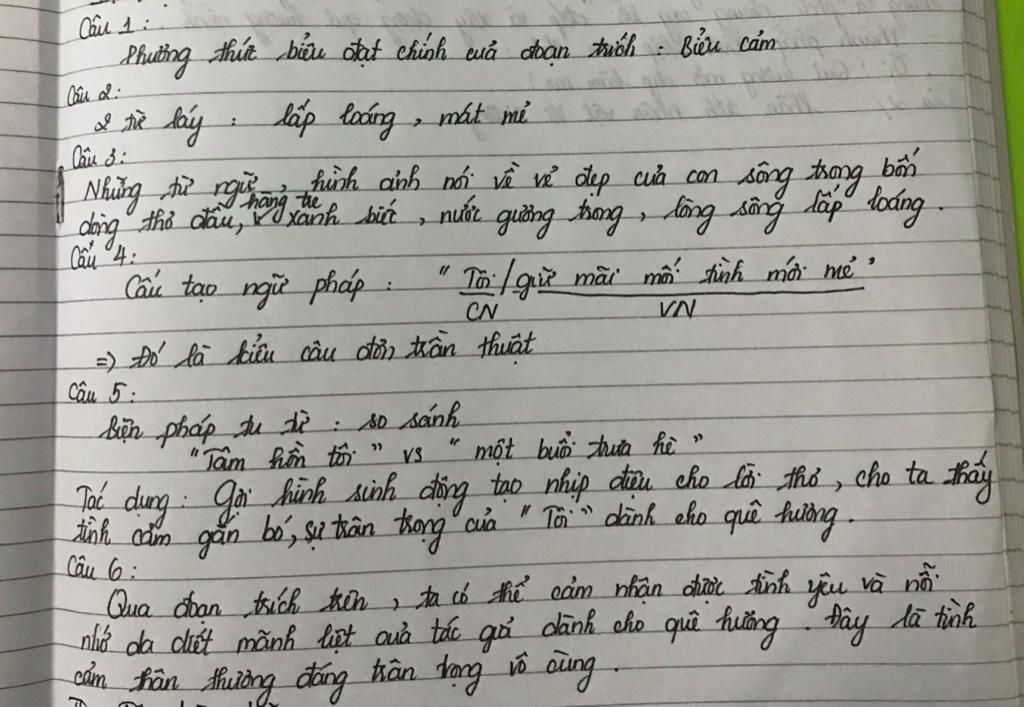 Câu 1:
Phương thức biểu đạt chính cuả đoạn trích : Biểu cảm
Câu 2:
2 từ láy : lấp loáng, mát mẻ
Câu 3:
Những từ ngữ, hình ảnh nói về vẻ đẹp của con sông trong bốn
hàng tre
dòng thơ đầu, xanh biếc, nước gương trong, lòng sông lấp loáng.
Câu 4:
Cấu tạo ngữ pháp : " Tôi / giữ mãi mối tình mới mẻ "
CN VN
=> Đó là kiểu câu đơn, trần thuật
Câu 5:
Biện pháp tu từ : so sánh
"Tâm hồn tôi" vs "một buổi trưa hè"
Tác dụng : Gợi hình sinh động tạo nhịp điệu cho lời thơ, cho ta thấy
tình cảm gắn bó, sự trân trọng của "Tôi" dành cho quê hương.
Câu 6:
Qua đoạn trích trên, ta có thể cảm nhận được tình yêu và nỗi
nhớ da diết mãnh liệt cuả tác giả dành cho quê hương. Đây là tình
cảm thân thương đáng trân trọng vô cùng.